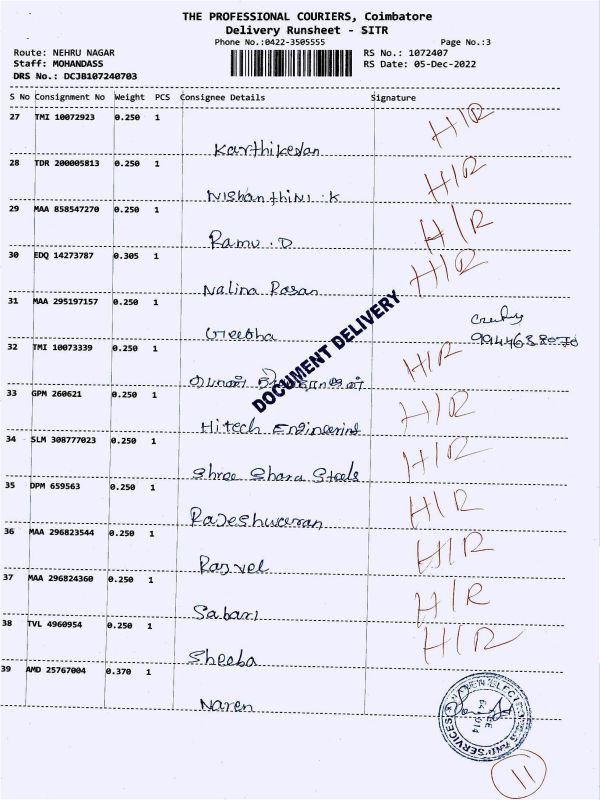 THE PROFESSIONAL COURIERS, Coimbatore
Delivery Runsheet - SITR
Phone No.:0422-3505555 Page No.:3
Route: NEHRU NAGAR RS No.: 1072407
Staff: MOHANDASS RS Date: 05-Dec-2022
DRS No.: DCJB107240703
S No Consignment No Weight PCS Consignee Details Signature
27 TMI 10072923 0.250 1 H/R
Karthikeyan
28 TDR 200005813 0.250 1 H/R
Nishanthini .K
29 MAA 858547270 0.250 1 H/R
Ramu . D
30 EDQ 14273787 0.305 1 H/R
Nalina Rosan
31 MAA 295197157 0.250 1
Geetha
32 TMI 10073339 0.250 1 H/R
DOCUMENT DELIVERY
33 GPM 260621 0.250 1 H/R
Hitech Engineering
34 SLM 308777023 0.250 1 H/R
Shree Shara Steels
35 DPM 659563 0.250 1 H/R
Rajeshwaran
36 MAA 296823544 0.250 1 H/R
Rajvel
37 MAA 296824360 0.250 1 H/R
Sabari
38 TVL 4960954 0.250 1 H/R
Sheeba
39 AMD 25767004 0.370 1
Naren
11